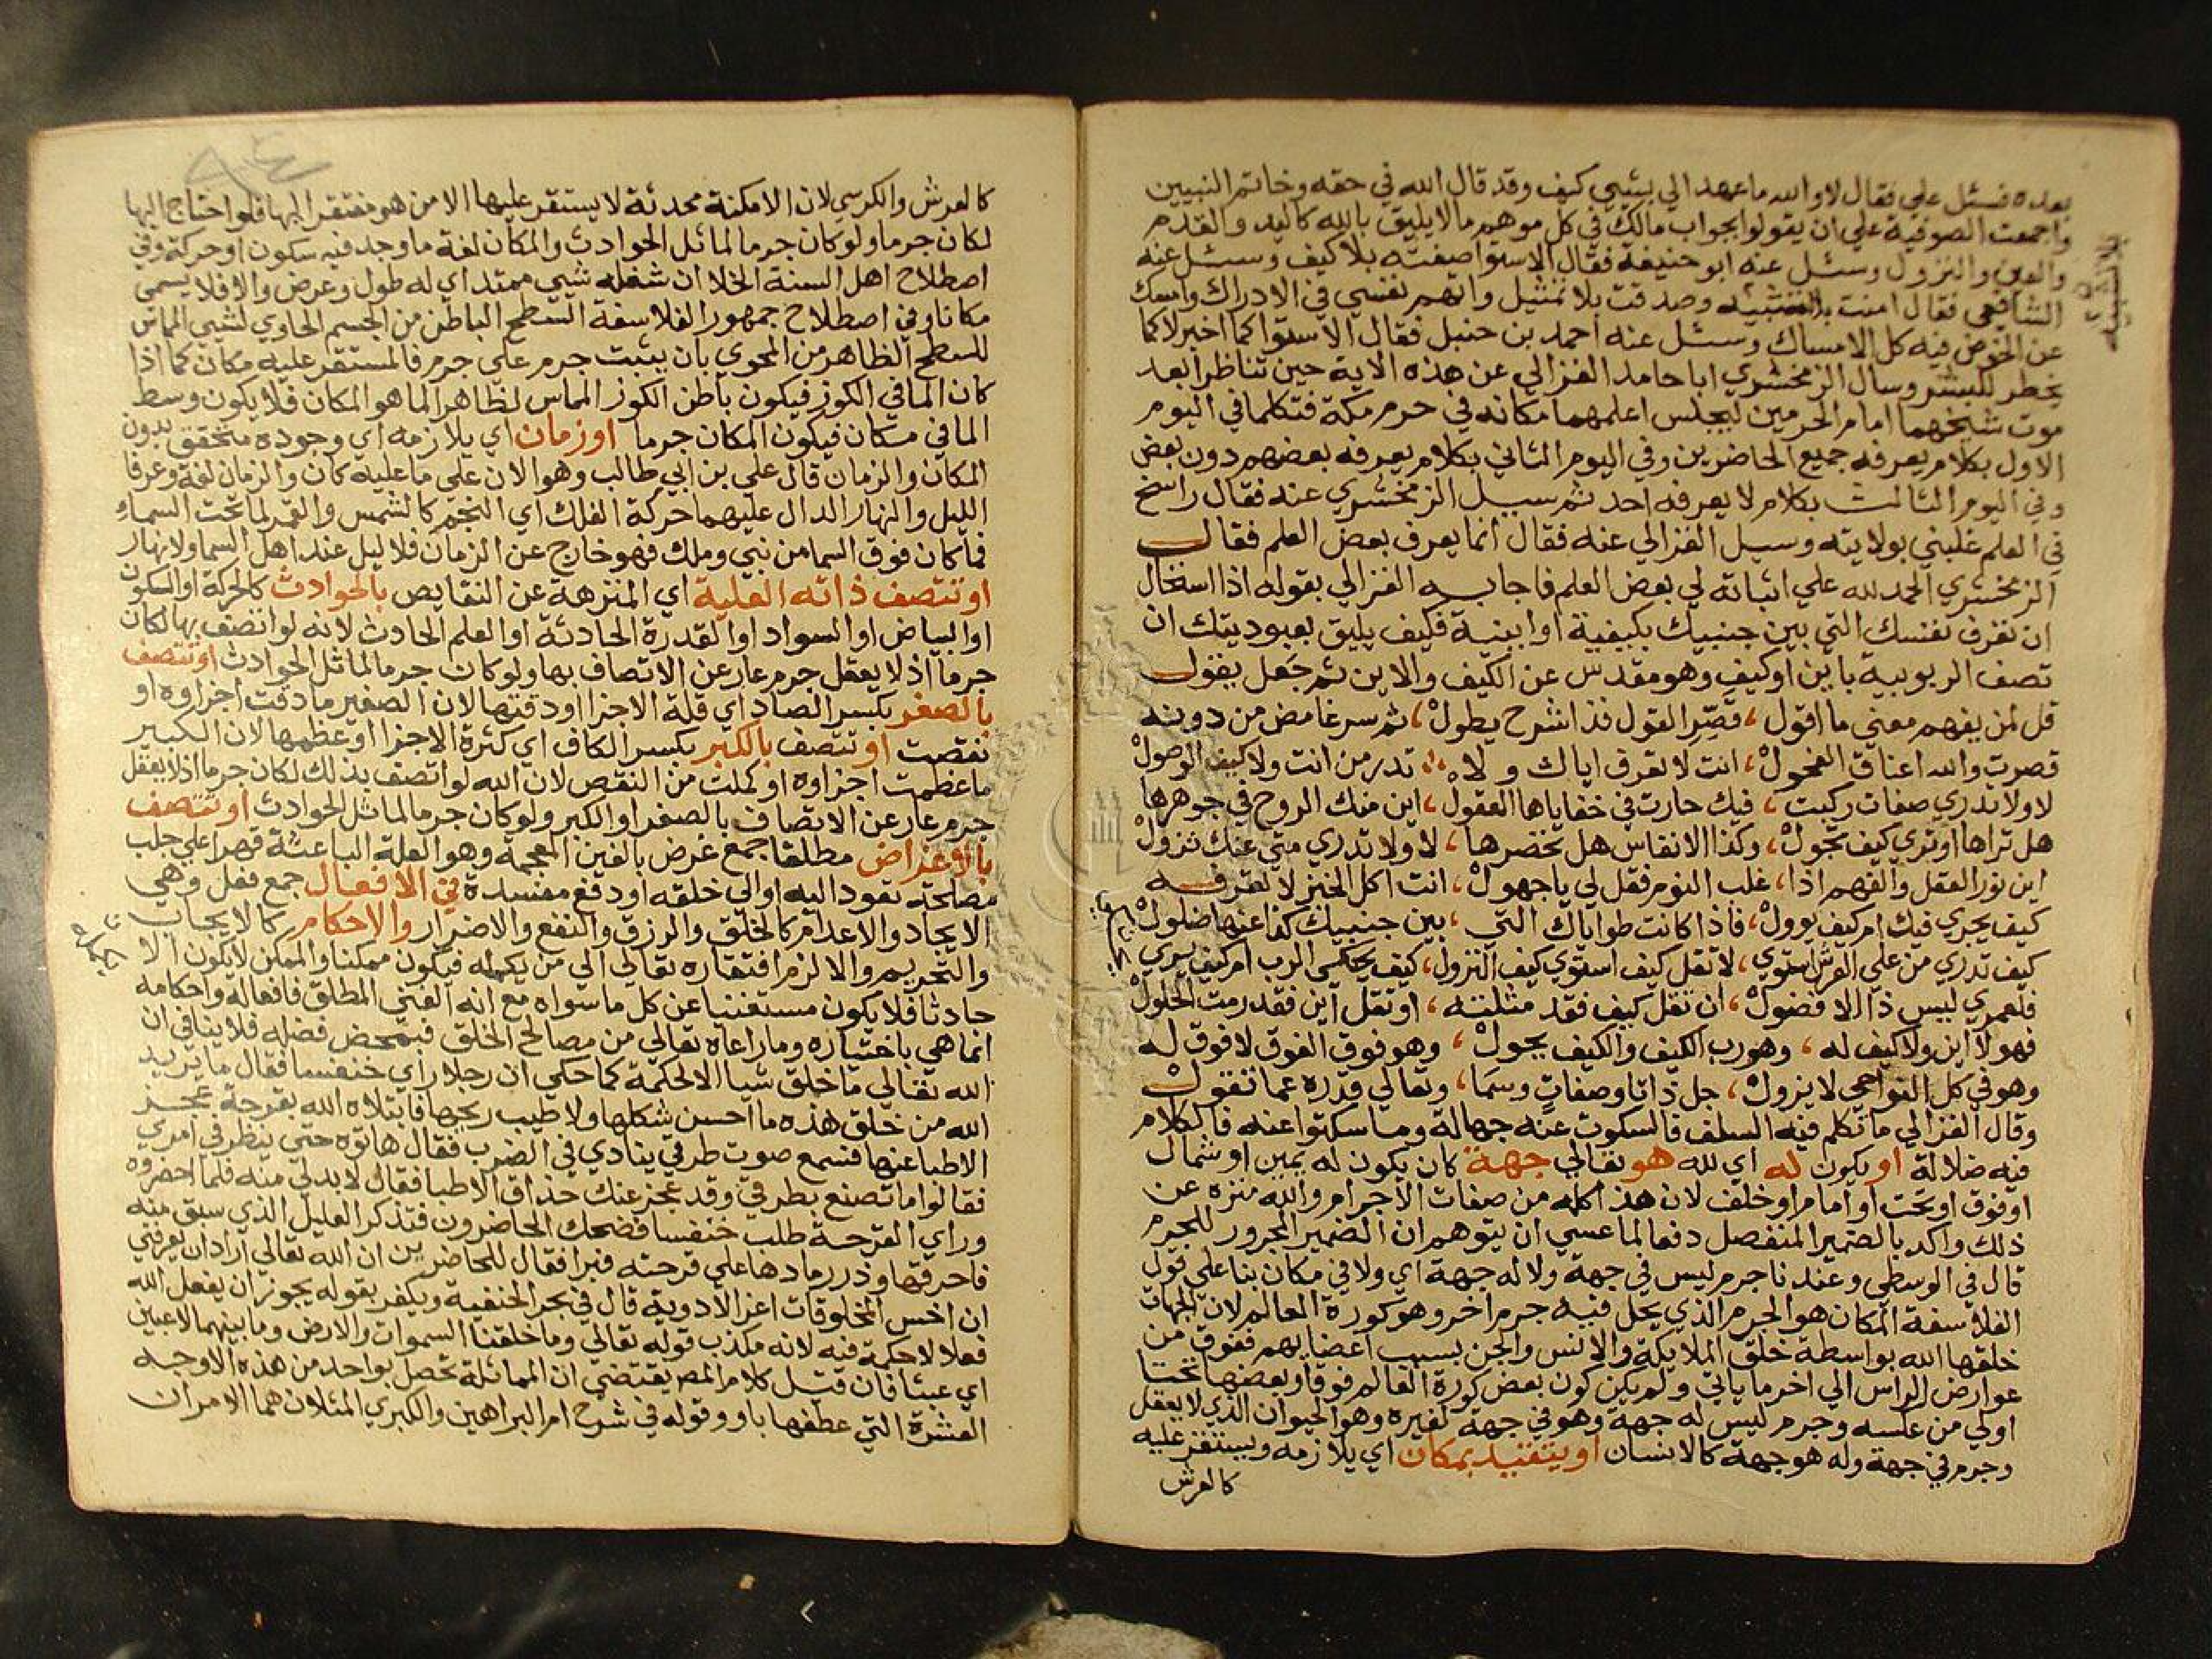 بعده فسئل علي فقال لا والله ما عهد الي بشيي كيف وقد قال الله في حقه وخاتم النبيين
واجمعت الصوفية علي ان يقولوا بجواب مالك في كل موهم ما لا يليق بالله كاليد والقدم
والعين والنزول وسئل عنه ابو حنيفة فقال الاستوا صفته بلا كيف وسئل عنه
الشافعي فقال امنت بلا تشبيه وصدقت بلا تمثيل واتهم نفسي في الادراك وامسك
عن الخوض فيه كل الامساك وسئل عنه احمد بن حنبل فقال الاستوا كما اخبر لا كما
يخطر للبشر وسال الزمخشري ابا حامد الغزالي عن هذه الاية حين تناظرا بعد
موت شيخهما امام الحرمين ليجلس اعلمهما مكانه في حرم مكة فتكلما في اليوم
الاول بكلام يعرفه جميع الحاضرين وفي اليوم الثاني بكلام يعرفه بعضهم دون بعض
وفي اليوم الثالث بكلام لا يعرفه احد ثم سيل الزمخشري عنه فقال راسخ
في العلم غلبني بولايته وسيل الغزالي عنه فقال انما يعرف بعض العلم فقال
الزمخشري الحمد لله علي اثباته لي بعض العلم فاجابه الغزالي بقوله اذا استحال
ان تعرف نفسك التي بين جنبيك بكيفية او اينية فكيف يليق بعبوديتك ان
تصف الربوبية باين او كيف وهو مقدس عن الكيف والاين ثم جعل يقول
قل لمن يفهم معني ما اقول ، قصر القول فذا شرح يطول ، ثم سر غامض من دونه
قصرت والله اعناق الفحول ، انت لا تعرف اياك ولا ، تدر من انت ولا كيف الوصول
لا ولا تدري صفات ركبت ، فيك حارت في خفاياها العقول ، اين منك الروح في جوهرها
هل تراها او تري كيف تجول ، وكذا الانفاس هل تحضرها ، لا ولا تدري متي عنك تزول
اين نور العقل والفهم اذا ، غلب النوم فقل لي يا جهول ، انت اكل الخبز لا تعرفه
كيف يجري فيك ام كيف يوول ، فاذا كانت طواياك التي ، بين جنبيك كذا عنها ضلول
كيف تدري من علي العرش استوي ، لا تقل كيف استوي كيف النزول ، كيف يحكي الرب ام كيف يري
فلعمري ليس ذا الا فضول ، ان تقل كيف فقد مثلته ، او تقل اين فقد رمت الحلول
فهو لا اين ولا كيف له ، وهو رب الكيف والكيف يحول ، وهو فوق الفوق لا فوق له
وهو في كل النواحي لا يزول ، جل ذاتا وصفات وسما ، وتعالي قدره عما تقول
وقال الغزالي ما تكلم فيه السلف فالسكوت عنه جهالة وما سكتوا عنه فالكلام
فيه ضلالة او يكون له اي لله هو تعالي جهة كان يكون له يمين او شمال
او فوق او تحت او امام او خلف لان هذا كله من صفات الاجرام والله منزه عن
ذلك واكد بالضمير المنفصل دفعا لما عسي ان يتوهم ان الضمير المجرور للجرم
قال في الوسطي وعندنا جرم ليس في جهة ولا له جهة اي ولا في مكان بنا علي قول
الفلاسفة المكان هو الجرم الذي يحل فيه جرم اخر وهو كورة العالم لان الجهات
خلقها الله بواسطة خلق الملايكة والانس والجن بسبب اعضايهم ففوق من
عوارض الراس الي اخر ما ياتي ولم يكن كون بعض كورة العالم فوقا وبعضها تحتا
اولي من عكسه وجرم ليس له جهة وهو في جهة لغيره وهو الحيوان الذي لا يعقل
وجرم في جهة وله هو جهة كالانسان او يتقيد بمكان اي يلازمه ويستقر عليه
كالعرش
كالعرش والكرسي لان الامكنة محدثة لا يستقر عليها الا من هو مفتقر اليها فلو احتاج اليها
لكان جرما ولو كان جرما لماثل الحوادث والمكان لغة ما وجد فيه سكون او حركة وفي
اصطلاح اهل السنة الخلا ان شغله شيي ممتد اي له طول وعرض والا فلا يسمي
مكانا وفي اصطلاح جمهور الفلاسفة السطح الباطن من الجسم الحاوي لشيي المماس
للسطح الظاهر من المحوي بان يثبت جرم علي جرم فالمستقر عليه مكان كما اذا
كان الما في الكوز فيكون باطن الكوز المماس لظاهر الما هو المكان فلا يكون وسط
الما في مكان فيكون المكان جرما او زمان اي يلازمه اي وجوده متحقق بدون
المكان والزمان قال علي بن ابي طالب وهو الان علي ما عليه كان والزمان لغة وعرفا
الليل والنهار الدال عليهما حركة الفلك اي النجم كالشمس والقمر لما تحت السماء
فما كان فوق السما من نبي وملك فهو خارج عن الزمان فلا ليل عند اهل السما ولا نهار
او تتصف ذاته العلية اي المنزهة عن النقايص بالحوادث كالحركة او السكون
او البياض او السواد او القدرة الحادثة او العلم الحادث لانه لو اتصف بها لكان
جرما اذ لا يعقل جرم عار عن الاتصاف بها ولو كان جرما لماثل الحوادث او تتصف
بالصغر بكسر الصاد اي قلة الاجزا او دقتها لان الصغير ما دقت اجزاوه او
نقصت او تتصف بالكبر بكسر الكاف اي كثرة الاجزا او عظمها لان الكبير
ما عظمت اجزاوه او كملت من النقص لان الله لو اتصف بذلك لكان جرما اذ لا يعقل
جرم عار عن الاتصاف بالصغر او الكبر ولو كان جرما لماثل الحوادث او تتصف
بالاغراض مطلقا جمع غرض بالغين المعجمة وهو العلة الباعثة قهرا علي جلب
مصلحة تعود اليه او الي خلقه او دفع مفسدة في الافعال جمع فعل وهي
الايجاد والاعدام كالخلق والرزق والنفع والاضرار والاحكام كالايجاب
والتحريم والا لزم افتقاره تعالي الي من يكمله فيكون ممكنا والممكن لا يكون الا
حادثا فلا يكون مستغنيا عن كل ما سواه مع انه الغني المطلق فافعاله واحكامه
انما هي باختياره وما راعاه تعالي من مصالح الخلق فبمحض فضله فلا ينافي ان
الله تعالي ما خلق شيا الا لحكمة كما حكي ان رجلا راي خنفسا فقال ما يريد
الله من خلق هذه ما احسن شكلها ولا طيب ريحها فابتلاه الله بقرحة عجز
الاطبا عنها فسمع صوت طرقي ينادي في الضرب فقال هاتوه حتي ينظر في امري
فقالوا ما تصنع بطرقي وقد عجز عنك حذاق الاطبا فقال لا بد لي منه فلما احضروه
وراي القرحة طلب خنفسا فضحك الحاضرون فتذكر العليل الذي سبق منه
فاحرقها وذر رمادها علي قرحته فبرا فقال للحاضرين ان الله تعالي اراد ان يعرفني
ان اخس المخلوقات اعز الادوية قال في بحر الحنفية ويكفر بقوله يجوز ان يفعل الله
فعلا لا حكمة فيه لانه مكذب قوله تعالي وما خلقنا السموات والارض وما بينهما لاعبين
اي عبثا فان قيل كلام المص يقتضي ان المماثلة تحصل بواحد من هذه الاوجه
العشرة التي عطفها باو وقوله في شرح ام البراهين والكبري المثلان هما الامران